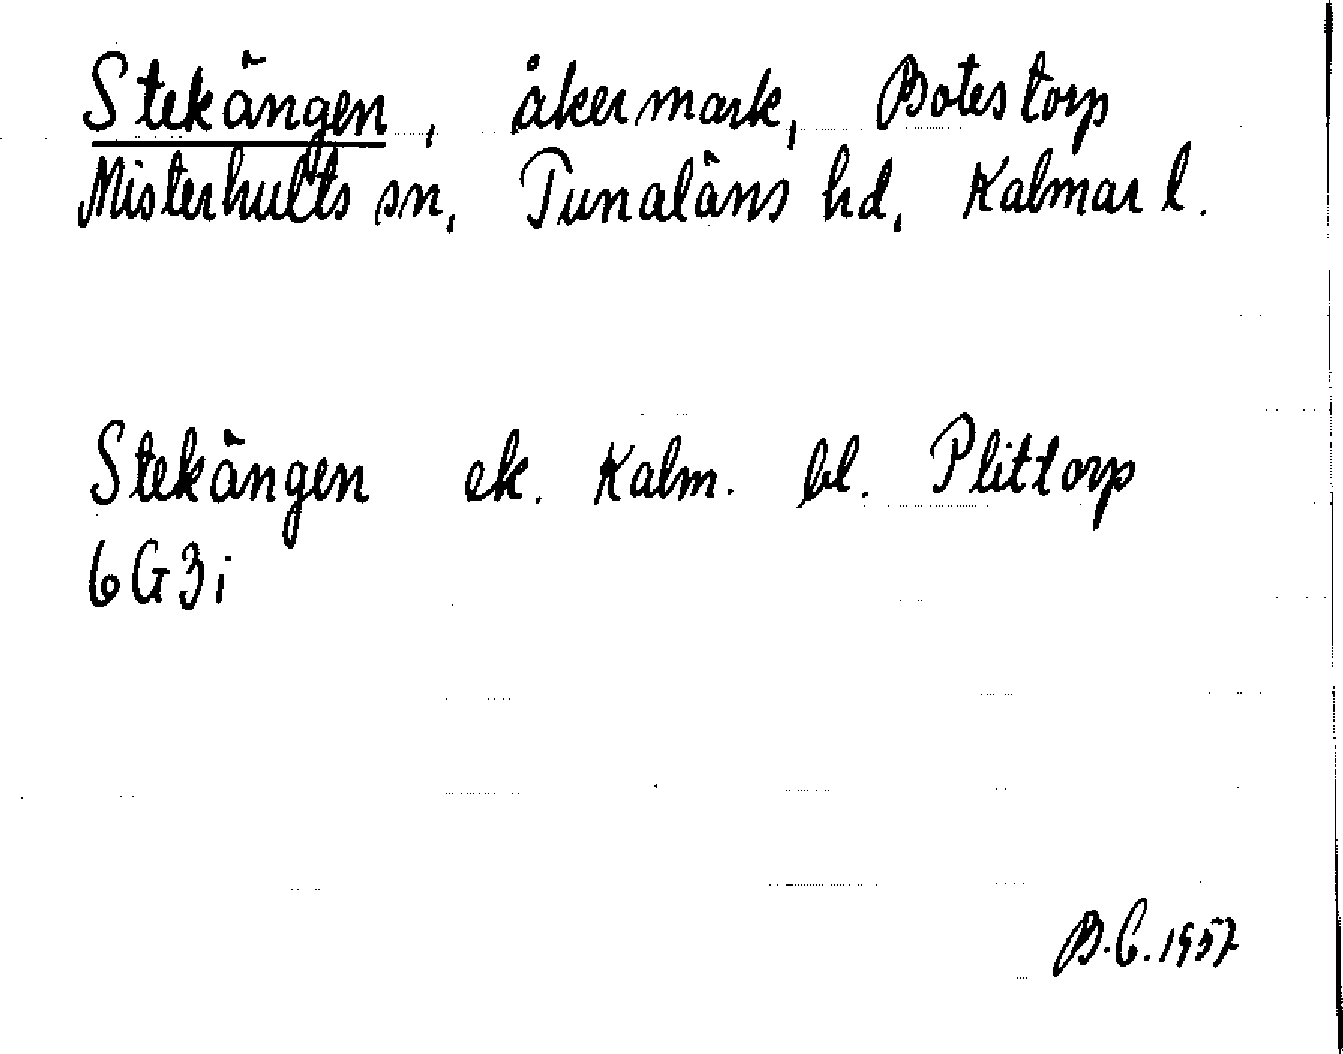 Stekängen, åkermark, Botestorp
Misterhults sn, Tunaläns hd, Kalmar l.
Stekängen ek. Kalm. bl. Plittorp
6G3i
B.C. 1957